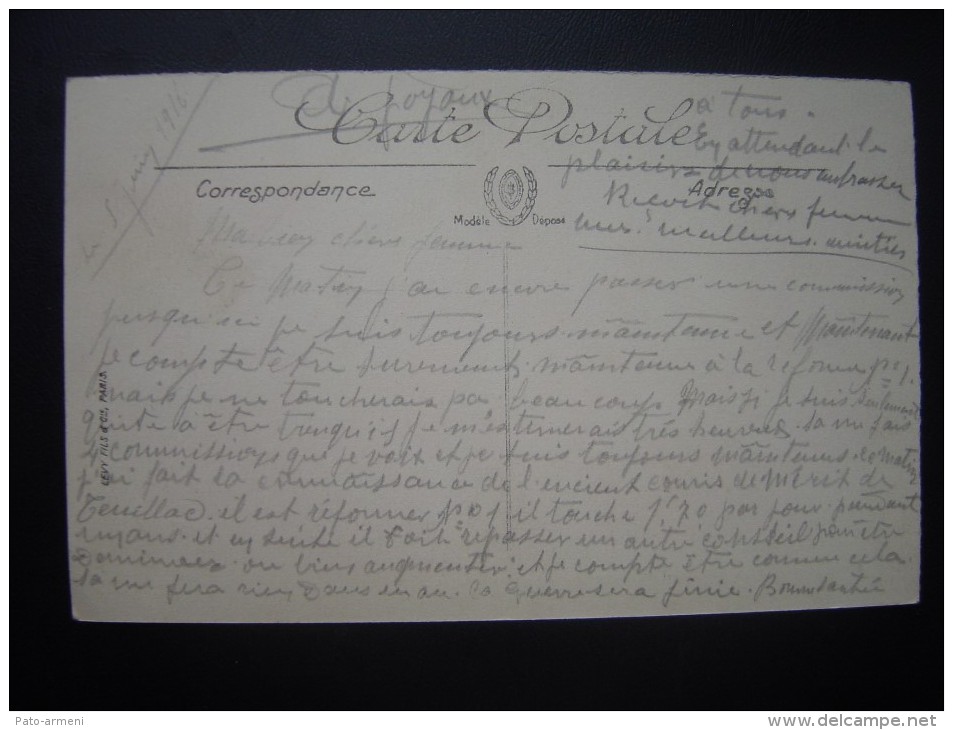 le 5 juin 1916
Carte Postale
Correspondance
Adresse
Modèle Déposé
LEVY FILS & Cie, PARIS.
chère femme
Ce matin j'ai encore passer une commission
jusqu'ici je suis toujours maintenue et maintenant
je compte être surement maintenue à la réforme no 1.
mais je ne toucherais pas beaucoup mais si je suis seulement
quitte à être tranquil je m'estimerais très heureux. sa me fais
4 commissions que je voit et je suis toujours maintenu. ce matin
j'ai fait la connaissance de l'encient comis de Mérit de
il est réformer no 1 il touche 1f70 par jour pendant
un ans. et ensuite il doit repasser un autre conseil pour être
ou bien augmenter. et je compte être comme cela
sa me fera rien dans un an. la guerre sera finie. Bonne santée
à tous.
En attendant le
plaisir de vous embrasser
Reçoit chère femme
mes meilleurs amitiés
Pato-armeni
www.delcampe.net